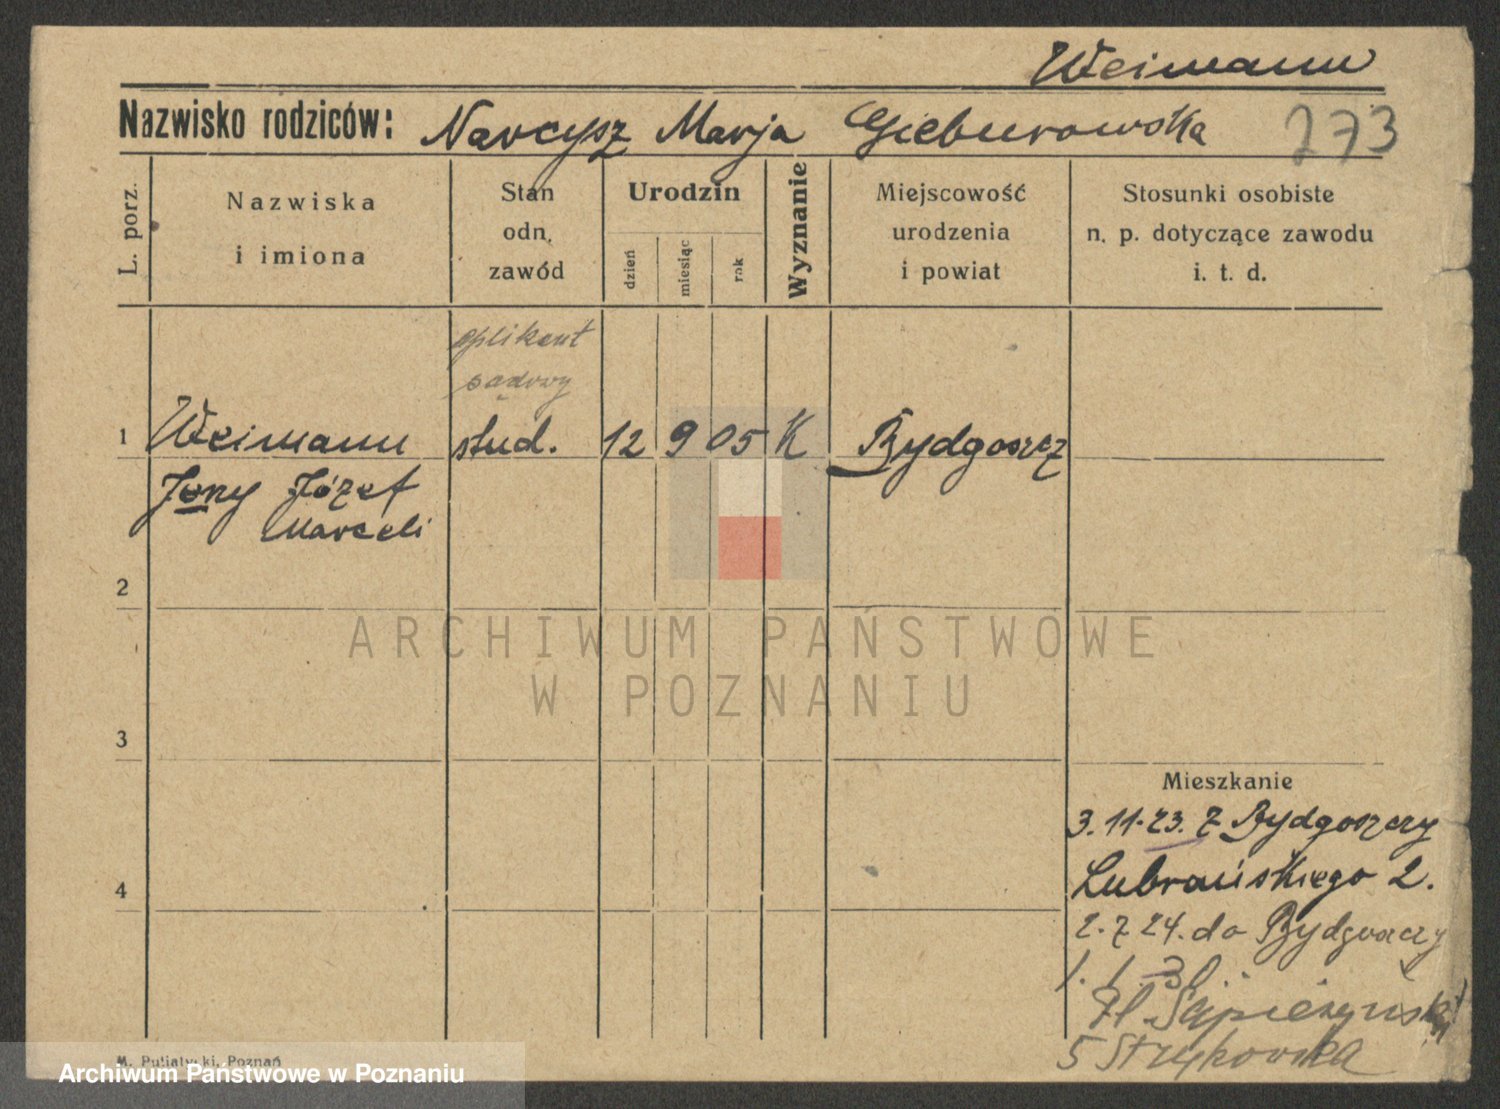 Weimann
Nazwisko rodziców: Narcysz Marja Gieburowska 273
L. porz.
Nazwiska
i imiona
Stan
odn.
zawód
Urodzin
dzień
miesiąc
rok
Wyznanie
Miejscowość
urodzenia
i powiat
Stosunki osobiste
n. p. dotyczące zawodu
i. t. d.
aplikant
sądowy
1 Weimann stud. 12 9 05 K Bydgoszcz
Jerzy Józef
Marceli
2
ARCHIWUM PAŃSTWOWE
W POZNANIU
3
Mieszkanie
3.11.23. z Bydgoszczy
Lubrańskiego 2.
4
2.7.24. do Bydgoszczy
1.1.31.
Pl Sapieżyński
5
M. Putiatycki, Poznań
Archiwum Państwowe w Poznaniu